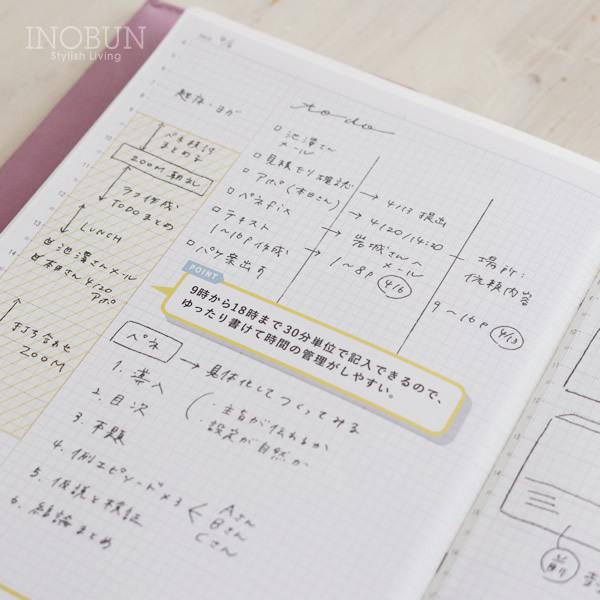 INOBUN
Stylish Living
4/6
起床・ヨガ
to do
ペネ検討
まとめ
ZOOM 朝礼
ラフ作成
TODOまとめ
LUNCH
池澤さんメール
本田さん 4/20
アポ
打ち合わせ
ZOOM
池澤さん
メール
見積もり確認
アポ(本田さん)
ペネfix
テキスト
1~16P作成
パケ案出す
→ 4/13 提出
→ 4/20 14:20
→ 岩城さんへ
メール
1~8P 4/6
場所:
依頼内容
9~16P 4/13
POINT
9時から18時まで30分単位で記入できるので、
ゆったり書けて時間の管理がしやすい。
ペネ
→ 具体化してつくってみる
・主旨が伝わるか
・設定が自然か
1. 導入
2. 目次
3. 本題
4. 例エピソード×3
Aさん
Bさん
Cさん
5. 仮説と検証
6. 結論まとめ